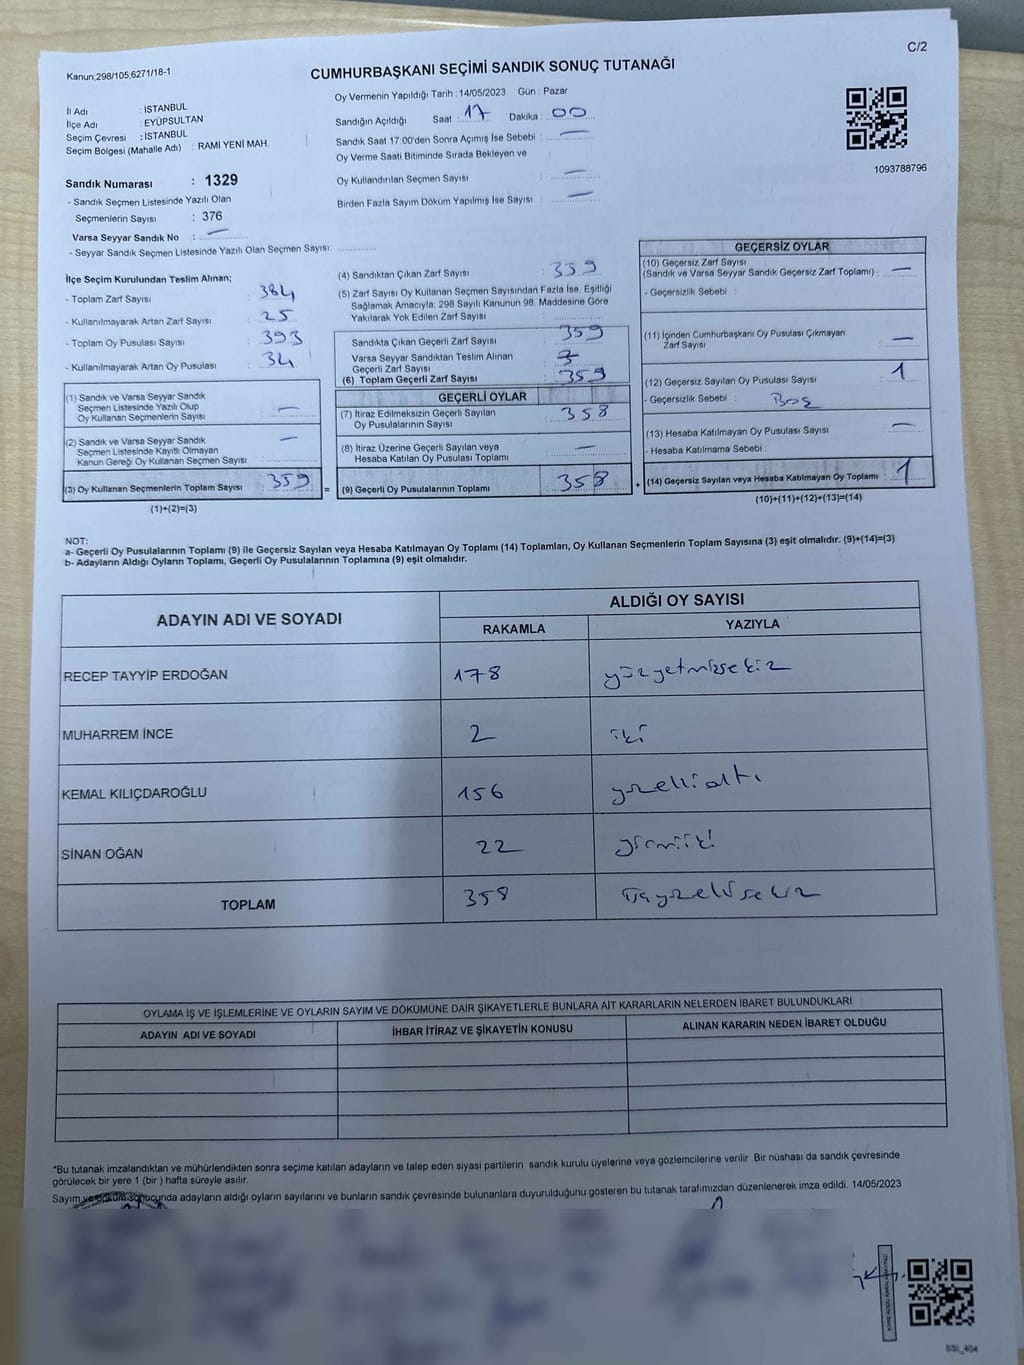 C/2
Kanun:298/105,6271/18-1
CUMHURBAŞKANI SEÇİMİ SANDIK SONUÇ TUTANAĞI
İl Adı : İSTANBUL
İlçe Adı : EYÜPSULTAN
Seçim Çevresi : İSTANBUL
Seçim Bölgesi (Mahalle Adı) : RAMİ YENİ MAH.
Sandık Numarası : 1329
- Sandık Seçmen Listesinde Yazılı Olan
Seçmenlerin Sayısı : 376
Varsa Seyyar Sandık No : —
- Seyyar Sandık Seçmen Listesinde Yazılı Olan Seçmen Sayısı:
Oy Vermenin Yapıldığı Tarih : 14/05/2023 Gün : Pazar
Sandığın Açıldığı Saat : 17 Dakika : 00
Sandık Saat 17:00'den Sonra Açımış İse Sebebi : —
Oy Verme Saati Bitiminde Sırada Bekleyen ve
Oy Kullandırılan Seçmen Sayısı : —
Birden Fazla Sayım Döküm Yapılmış İse Sayısı : —
1093788796
İlçe Seçim Kurulundan Teslim Alınan;
- Toplam Zarf Sayısı : 384
- Kullanılmayarak Artan Zarf Sayısı : 25
- Toplam Oy Pusulası Sayısı : 393
- Kullanılmayarak Artan Oy Pusulası : 34
(1) Sandık ve Varsa Seyyar Sandık
Seçmen Listesinde Yazılı Olup
Oy Kullanan Seçmenlerin Sayısı : —
(2) Sandık ve Varsa Seyyar Sandık
Seçmen Listesinde Kayıtlı Olmayan
Kanun Gereği Oy Kullanan Seçmen Sayısı : —
(3) Oy Kullanan Seçmenlerin Toplam Sayısı : 359 =
(1)+(2)=(3)
(4) Sandıktan Çıkan Zarf Sayısı : 359
(5) Zarf Sayısı Oy Kullanan Seçmen Sayısından Fazla İse, Eşitliği
Sağlamak Amacıyla; 298 Sayılı Kanunun 98. Maddesine Göre
Yakılarak Yok Edilen Zarf Sayısı :
Sandıkta Çıkan Geçerli Zarf Sayısı : 359
Varsa Seyyar Sandıktan Teslim Alınan
Geçerli Zarf Sayısı :
(6) Toplam Geçerli Zarf Sayısı : 359
GEÇERLİ OYLAR
(7) İtiraz Edilmeksizin Geçerli Sayılan
Oy Pusulalarının Sayısı : 358
(8) İtiraz Üzerine Geçerli Sayılan veya
Hesaba Katılan Oy Pusulası Toplamı : —
(9) Geçerli Oy Pusulalarının Toplamı : 358 +
GEÇERSİZ OYLAR
(10) Geçersiz Zarf Sayısı
(Sandık ve Varsa Seyyar Sandık Geçersiz Zarf Toplamı) : —
- Geçersizlik Sebebi :
(11) İçinden Cumhurbaşkanı Oy Pusulası Çıkmayan
Zarf Sayısı : —
(12) Geçersiz Sayılan Oy Pusulası Sayısı : 1
- Geçersizlik Sebebi : Boş
(13) Hesaba Katılmayan Oy Pusulası Sayısı : —
- Hesaba Katılmama Sebebi :
(14) Geçersiz Sayılan veya Hesaba Katılmayan Oy Toplamı : 1
(10)+(11)+(12)+(13)=(14)
NOT:
a- Geçerli Oy Pusulalarının Toplamı (9) ile Geçersiz Sayılan veya Hesaba Katılmayan Oy Toplamı (14) Toplamları, Oy Kullanan Seçmenlerin Toplam Sayısına (3) eşit olmalıdır. (9)+(14)=(3)
b- Adayların Aldığı Oyların Toplamı, Geçerli Oy Pusulalarının Toplamına (9) eşit olmalıdır.
ADAYIN ADI VE SOYADI ALDIĞI OY SAYISI
RAKAMLA YAZIYLA
RECEP TAYYİP ERDOĞAN 178 yüzyetmişsekiz
MUHARREM İNCE 2 iki
KEMAL KILIÇDAROĞLU 156 yüzellialtı
SİNAN OĞAN 22 yirmiiki
TOPLAM 358 üçyüzellisekiz
OYLAMA İŞ VE İŞLEMLERİNE VE OYLARIN SAYIM VE DÖKÜMÜNE DAİR ŞİKAYETLERLE BUNLARA AİT KARARLARIN NELERDEN İBARET BULUNDUKLARI
ADAYIN ADI VE SOYADI İHBAR İTİRAZ VE ŞİKAYETİN KONUSU ALINAN KARARIN NEDEN İBARET OLDUĞU
*Bu tutanak imzalandıktan ve mühürlendikten sonra seçime katılan adayların ve talep eden siyasi partilerin sandık kurulu üyelerine veya gözlemcilerine verilir .Bir nüshası da sandık çevresinde
görülecek bir yere 1 (bir ) hafta süreyle asılır.
Sayım ve döküm sonucunda adayların aldığı oyların sayılarını ve bunların sandık çevresinde bulunanlara duyurulduğunu gösteren bu tutanak tarafımızdan düzenlenerek imza edildi. 14/05/2023